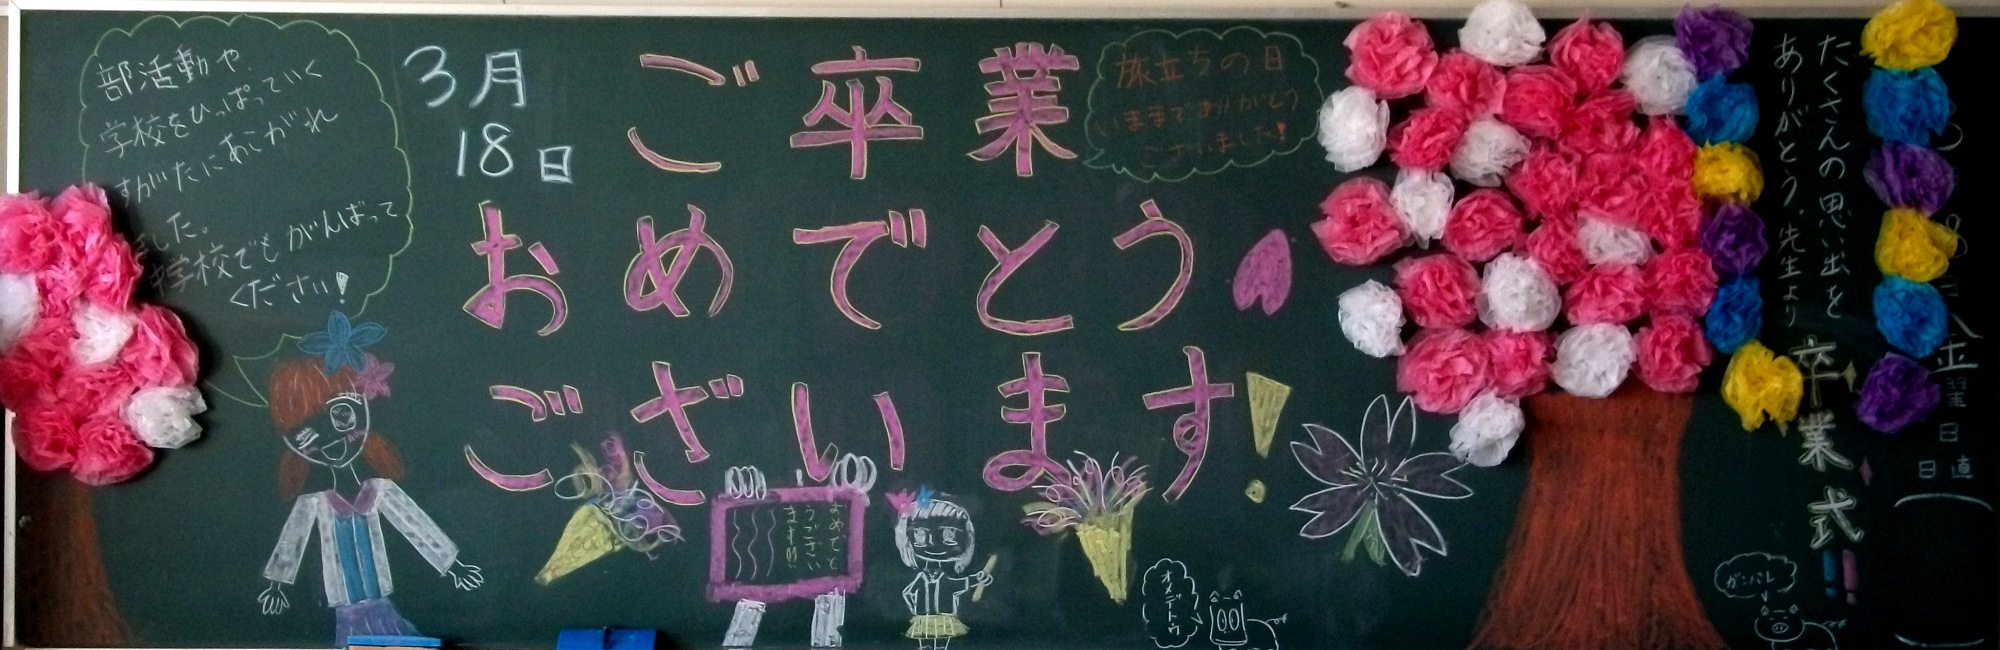 部活動や
学校をひっぱっていく
すがたにあこがれ
ました。
中学校でもがんばって
ください!
3月
18日
ご卒業
おめでとう
ございます!
旅立ちの日
いままでありがとう
ございました!
おめでと
うござい
ます!!
オメデトウ
たくさんの思い出を
ありがとう。先生より
卒業式!!
ガンバレ
金
曜
日
日直